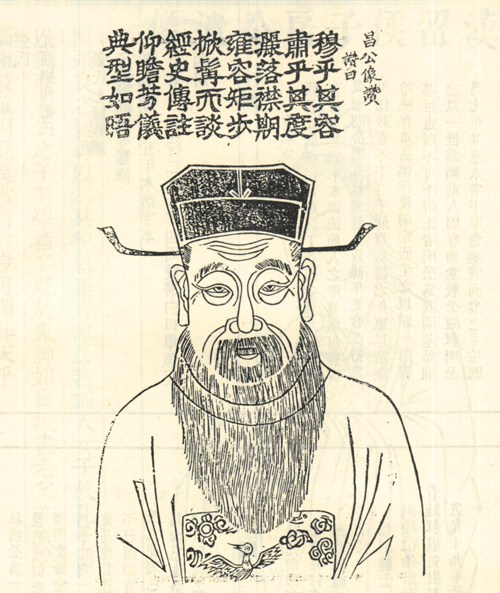 昌公像讚
讚曰
穆乎其容
肅乎其度
灑落襟期
雍容矩步
掀髯而談
經史傳註
仰瞻芳儀
典型如晤